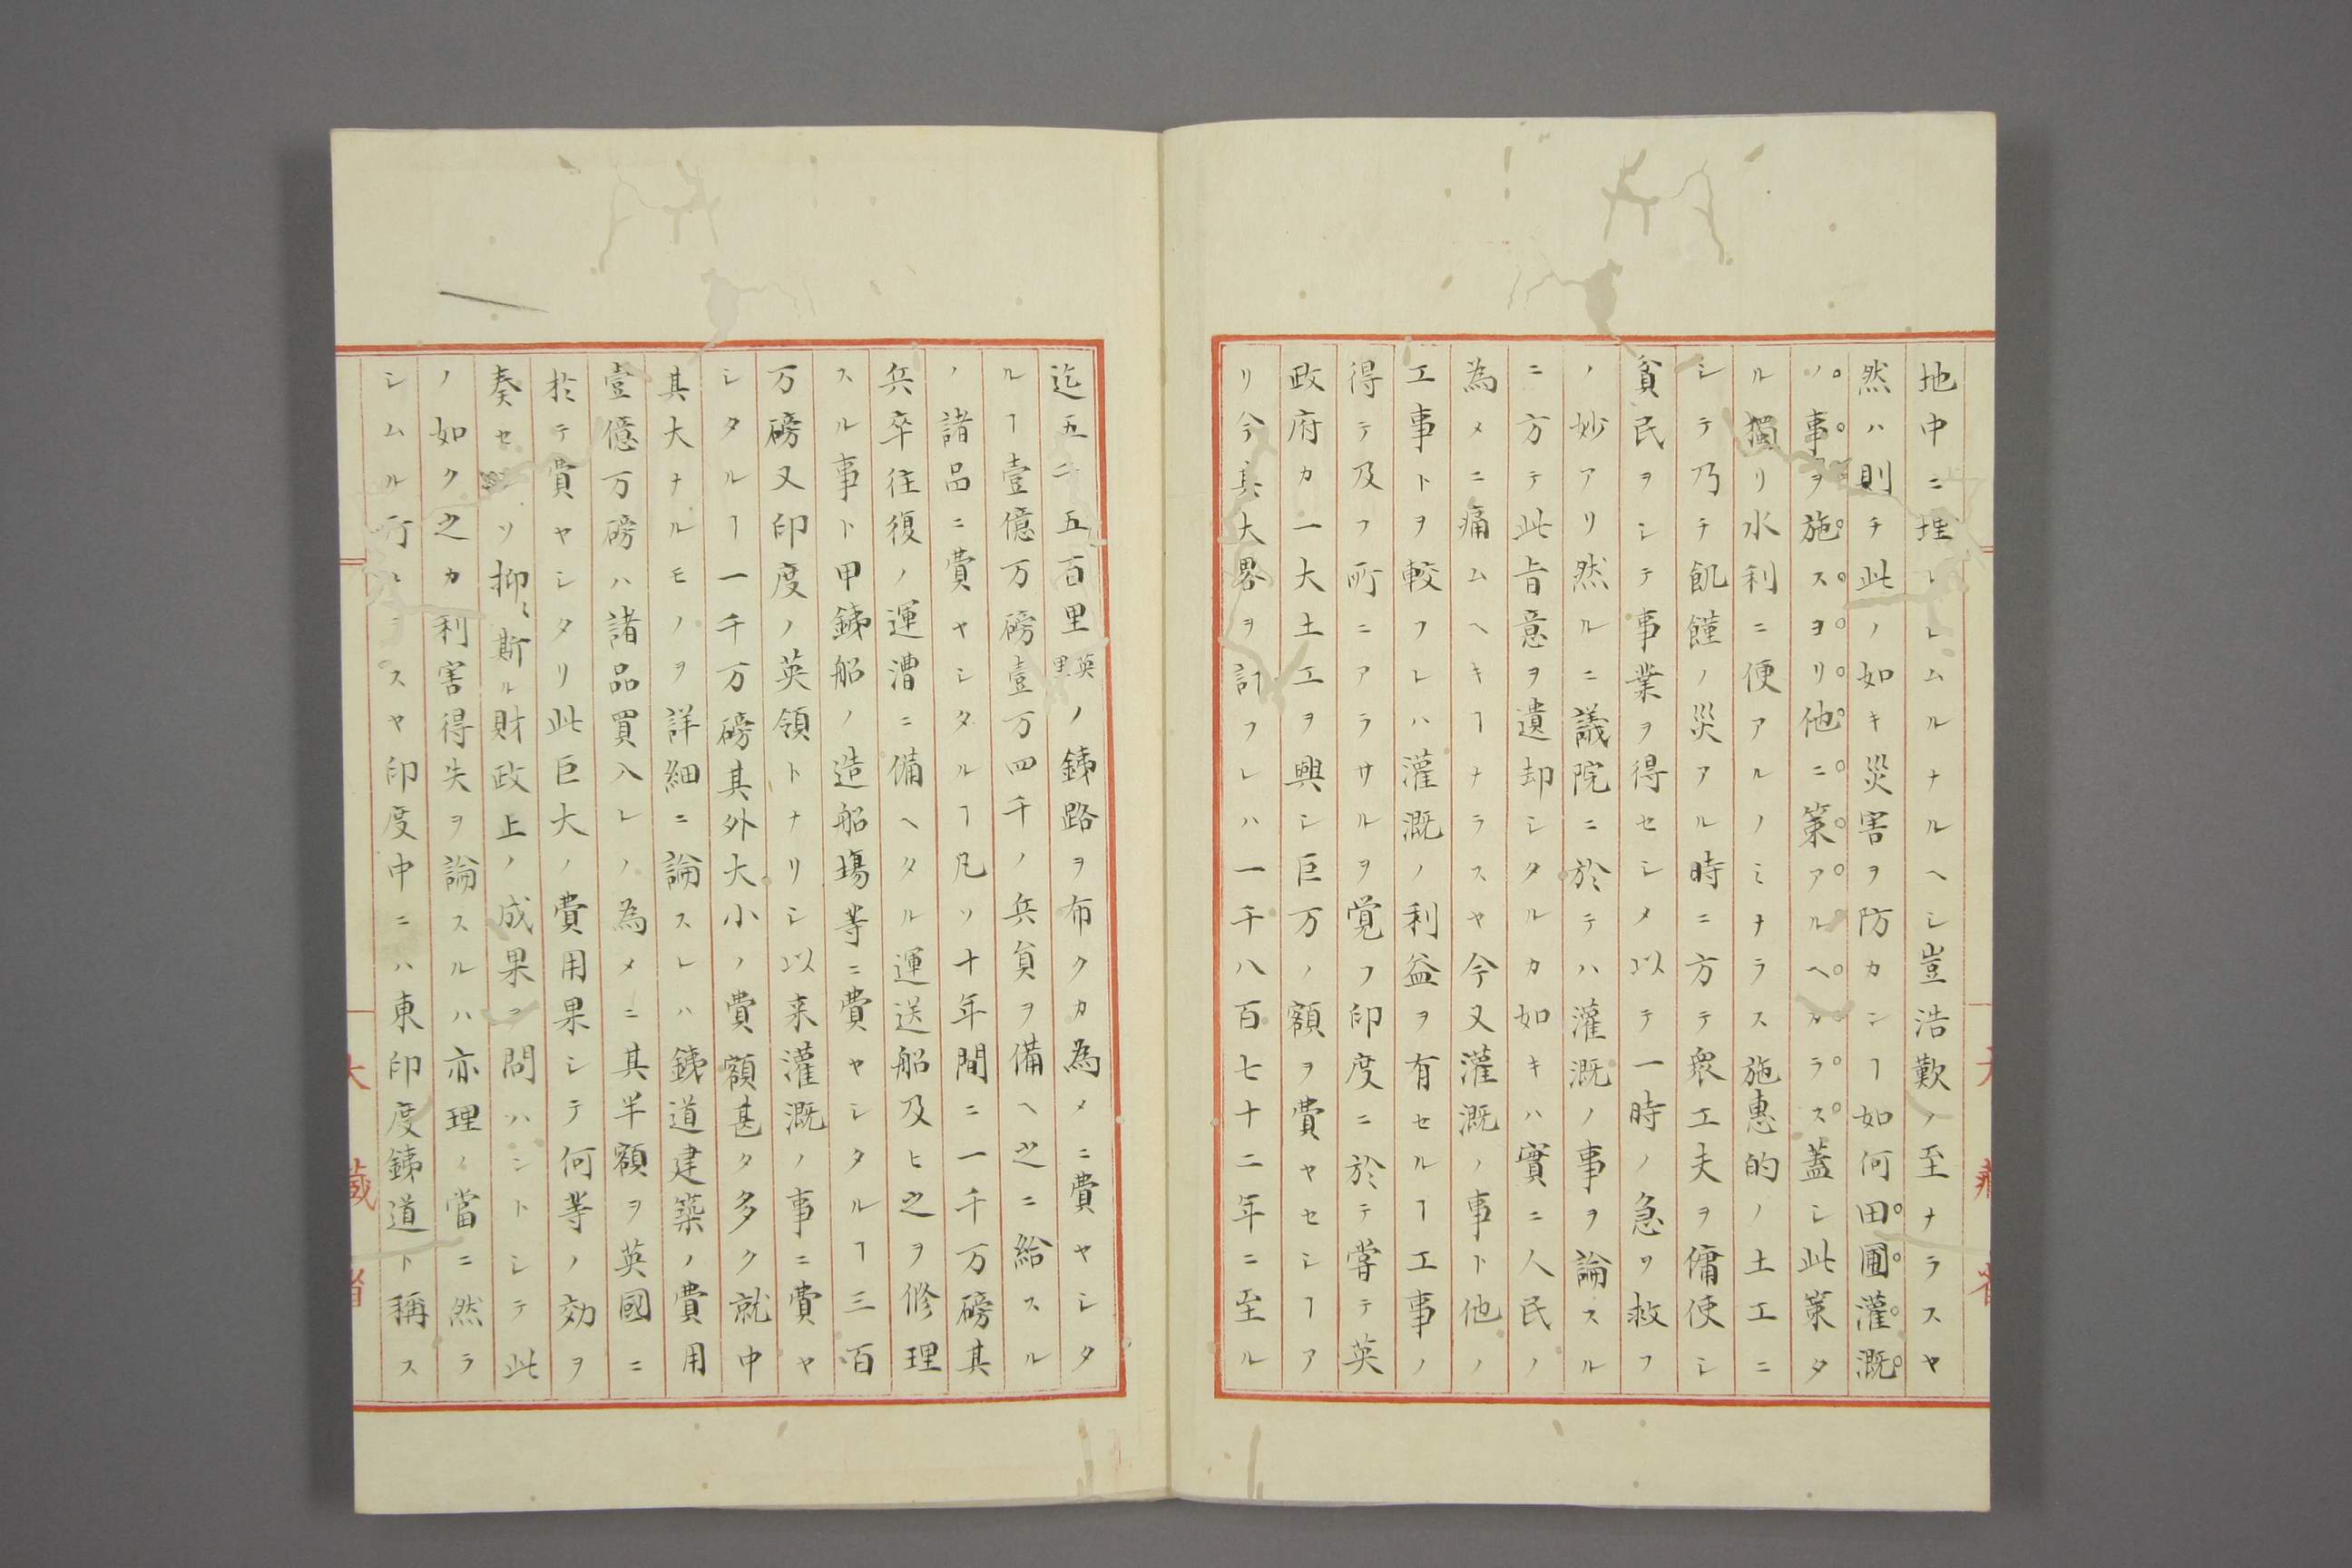 地中ニ埋レレムルナルヘシ豈浩歎ノ至ナラスヤ
然ハ則チ此ノ如キ災害ヲ防カンヿ如何田圃灌漑
ノ事ヲ施スヨリ他ニ策アルヘカラス蓋シ此策タ
ル獨リ水利ニ便アルノミナラス施惠的ノ土工ニ
シテ乃チ飢饉ノ災アル時ニ方テ衆工夫ヲ傭使シ
貧民ヲシテ事業ヲ得セシメ以テ一時ノ急ヲ救フ
ノ妙アリ然ルニ議院ニ於テハ灌漑ノ事ヲ論スル
ニ方テ此旨意ヲ遺却シタルカ如キハ實ニ人民ノ
為メニ痛ムヘキヿナラスヤ今又灌漑ノ事ト他ノ
工事トヲ較フレハ灌漑ノ利益ヲ有セルヿ工事ノ
得テ及フ所ニアラサルヲ覚フ印度ニ於テ嘗テ英
政府カ一大土工ヲ興シ巨万ノ額ヲ費ヤセシヿア
リ今其大畧ヲ計フレハ一千八百七十二年ニ至ル
迄五千五百里英里ノ銕路ヲ布クカ為メニ費ヤシタ
ルヿ壹億万磅壹万四千ノ兵負ヲ備ヘ之ニ給スル
ノ諸品ニ費ヤシタルヿ凡ソ十年間ニ一千万磅其
兵卒往復ノ運漕ニ備ヘタル運送船及ヒ之ヲ修理
スル事ト甲銕船ノ造船塲等ニ費ヤシタルヿ三百
万磅又印度ノ英領トナリシ以来灌漑ノ事ニ費ヤ
シタルヿ一千万磅其外大小ノ費額甚タ多ク就中
其大ナルモノヲ詳細ニ論スレハ銕道建築ノ費用
壹億万磅ハ諸品買入レノ為メニ其半額ヲ英國ニ
於テ費ヤシタリ此巨大ノ費用果シテ何等ノ効ヲ
奏セシソ抑〻斯ル財政上ノ成果ヲ問ハントシテ此
ノ如ク之カ利害得失ヲ論スルハ亦理ノ當ニ然ラ
シムル所ニスヤ印度中ニハ東印度銕道ト稱ス
大藏省